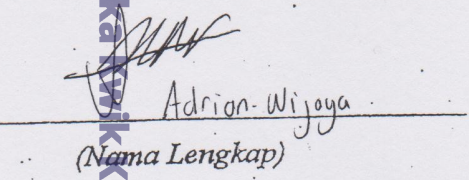 Adrian Wijaya
(Nama Lengkap)